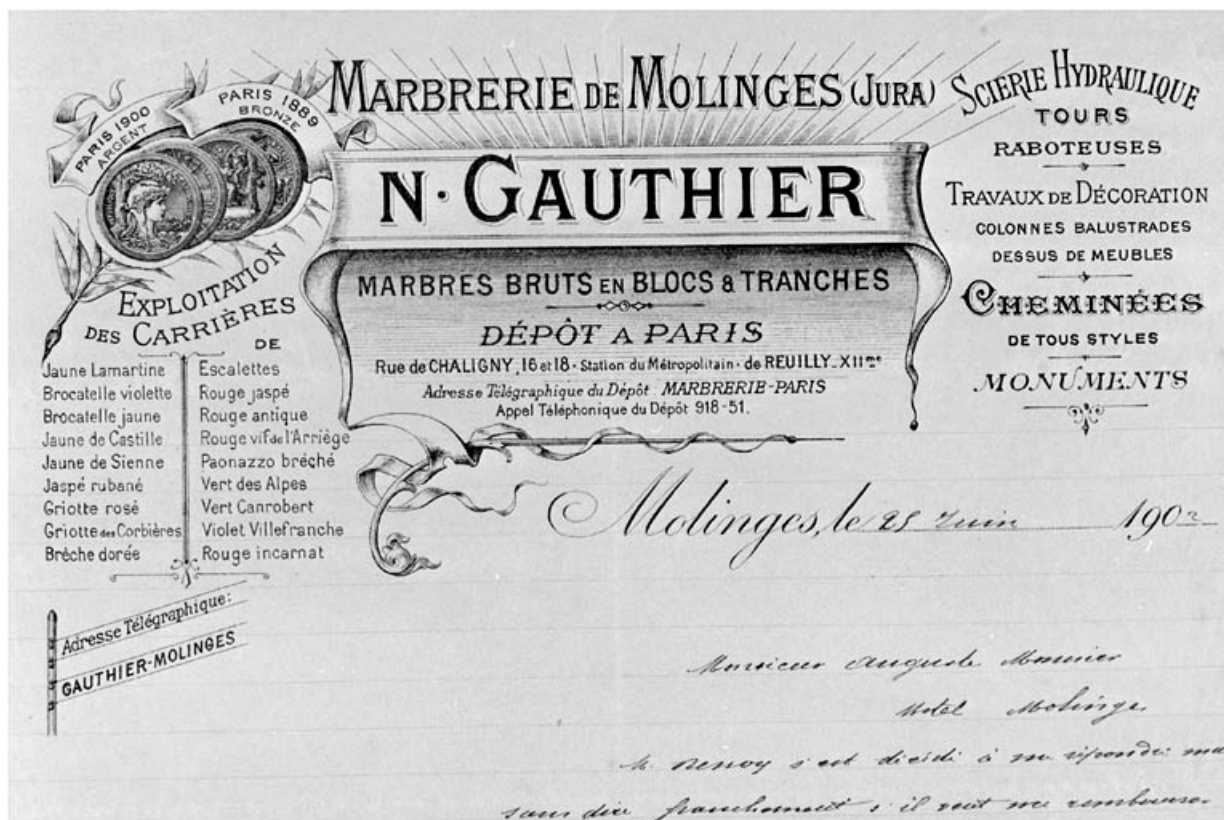 PARIS 1900
ARGENT
PARIS 1889
BRONZE
MARBRERIE DE MOLINGES (JURA)
N. GAUTHIER
MARBRES BRUTS EN BLOCS & TRANCHES
DÉPÔT A PARIS
Rue de CHALIGNY, 16 et 18 - Station du Métropolitain - de REUILLY_XIIme
Adresse Télégraphique du Dépôt MARBRERIE-PARIS
Appel Téléphonique du Dépôt 918-51.
SCIERIE HYDRAULIQUE
TOURS
RABOTEUSES
TRAVAUX DE DÉCORATION
COLONNES BALUSTRADES
DESSUS DE MEUBLES
CHEMINÉES
DE TOUS STYLES
MONUMENTS
EXPLOITATION
DES CARRIÈRES
DE
Jaune Lamartine
Brocatelle violette
Brocatelle jaune
Jaune de Castille
Jaune de Sienne
Jaspé rubané
Griotte rosé
Griotte des Corbières
Brêche dorée
Escalettes
Rouge jaspé
Rouge antique
Rouge vif de l'Arriège
Paonazzo bréché
Vert des Alpes
Vert Canrobert
Violet Villefranche
Rouge incarnat
Adresse Télégraphique:
GAUTHIER-MOLINGES
Molinges, le 25 Juin 1902
Monsieur Auguste Monnier
Hotel Molinges
s'est décidé à me répondre
sans dire franchement s'il veut me rembourser